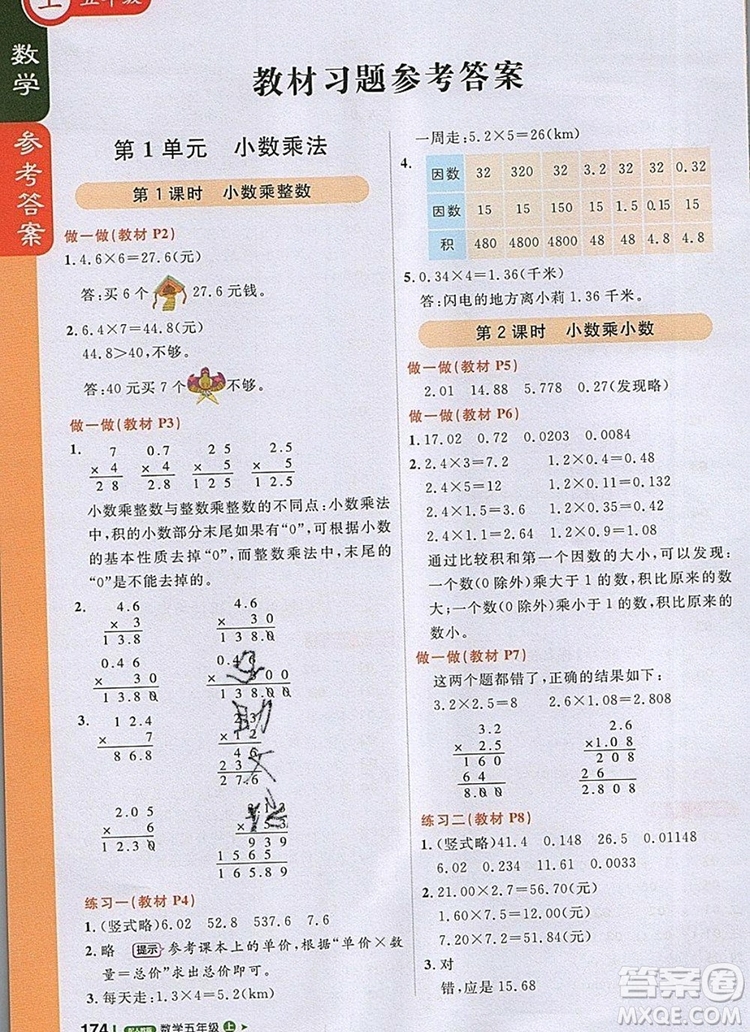 上 五年级
数学
参考答案
教材习题参考答案
第1单元 小数乘法
第1课时 小数乘整数
做一做(教材 P2)
1. 4.6×6=27.6(元)
答:买 6 个 27.6 元钱。
2. 6.4×7=44.8(元)
44.8>40,不够。
答:40 元买 7 个 不够。
做一做(教材 P3)
1. 7 0.7 2 5 2.5
× 4 × 4 × 8 × 8
2 8 2.8 2 0 0 2 0.0
小数乘整数与整数乘整数的不同点:小数乘法
中,积的小数部分末尾如果有“0”,可根据小数
的基本性质去掉“0”,而整数乘法中,末尾的
“0”是不能去掉的。
2. 4.6 4.6
× 3 × 3 0
1 3.8 1 3 8.0
0.4 6 0.4
× 3 0 × 3 0 0
1 3.8 0 1 3 8.0 0
3. 1 2.4 2.3
× 7 × 1 2
8 6.8 4 6
2 3
2 7.6
2.0 5
× 6 × 1 5
1 2.3 0 9 3 9
1 5 6 5
练习一(教材 P4)
1. (竖式略)6.02 52.8 537.6 7.6
2. 略 提示 参考课本上的单价,根据“单价×数
量=总价”求出总价即可。
3. 每天走:1.3×4=5.2(km)
174 数学五年级 上
一周走:5.2×5=26(km)
4. 因数 32 320 32 3.2 32 0.32
因数 15 15 150 1.5 0.15 15
积 480 4800 4800 4.8 4.8 4.8
5. 0.34×4=1.36(千米)
答:闪电的地方离小莉 1.36 千米。
第2课时 小数乘小数
做一做(教材 P5)
2.01 14.88 5.778 0.27(发现略)
做一做(教材 P6)
1. 17.02 0.72 0.0203 0.0084
2. 2.4×3=7.2 1.2×0.4=0.48
2.4×5=12 1.2×0.5=0.6
2.4×1.5=3.6 1.2×3=3.6
2.4×1.1=2.64 1.2×1=1.2
通过比较积和第一个因数的大小,可以发现:
一个数(0 除外)乘大于 1 的数,积比原来的
数大;一个数(0 除外)乘小于 1 的数,积比原来的
数小。
做一做(教材 P7)
这两个题都错了,正确的结果如下:
3.2×2.5=8 2.6×1.08=2.808
3.2 2.6
× 2.5 × 1.0 8
1 6 0 2 0 8
6 4 2 6
8.0 0 2.8 0 8
练习二(教材 P8)
1. (竖式略)41.4 0.148 26.5 0.01148
6.02 0.03 0.172 0.0033
2. 21.00×2.7=56.70(元)
1.60×7.5=12.00(元)
7.20×7.2=51.84(元)
3. 对
错,应是 15.68
答案圈
MXQE.COM